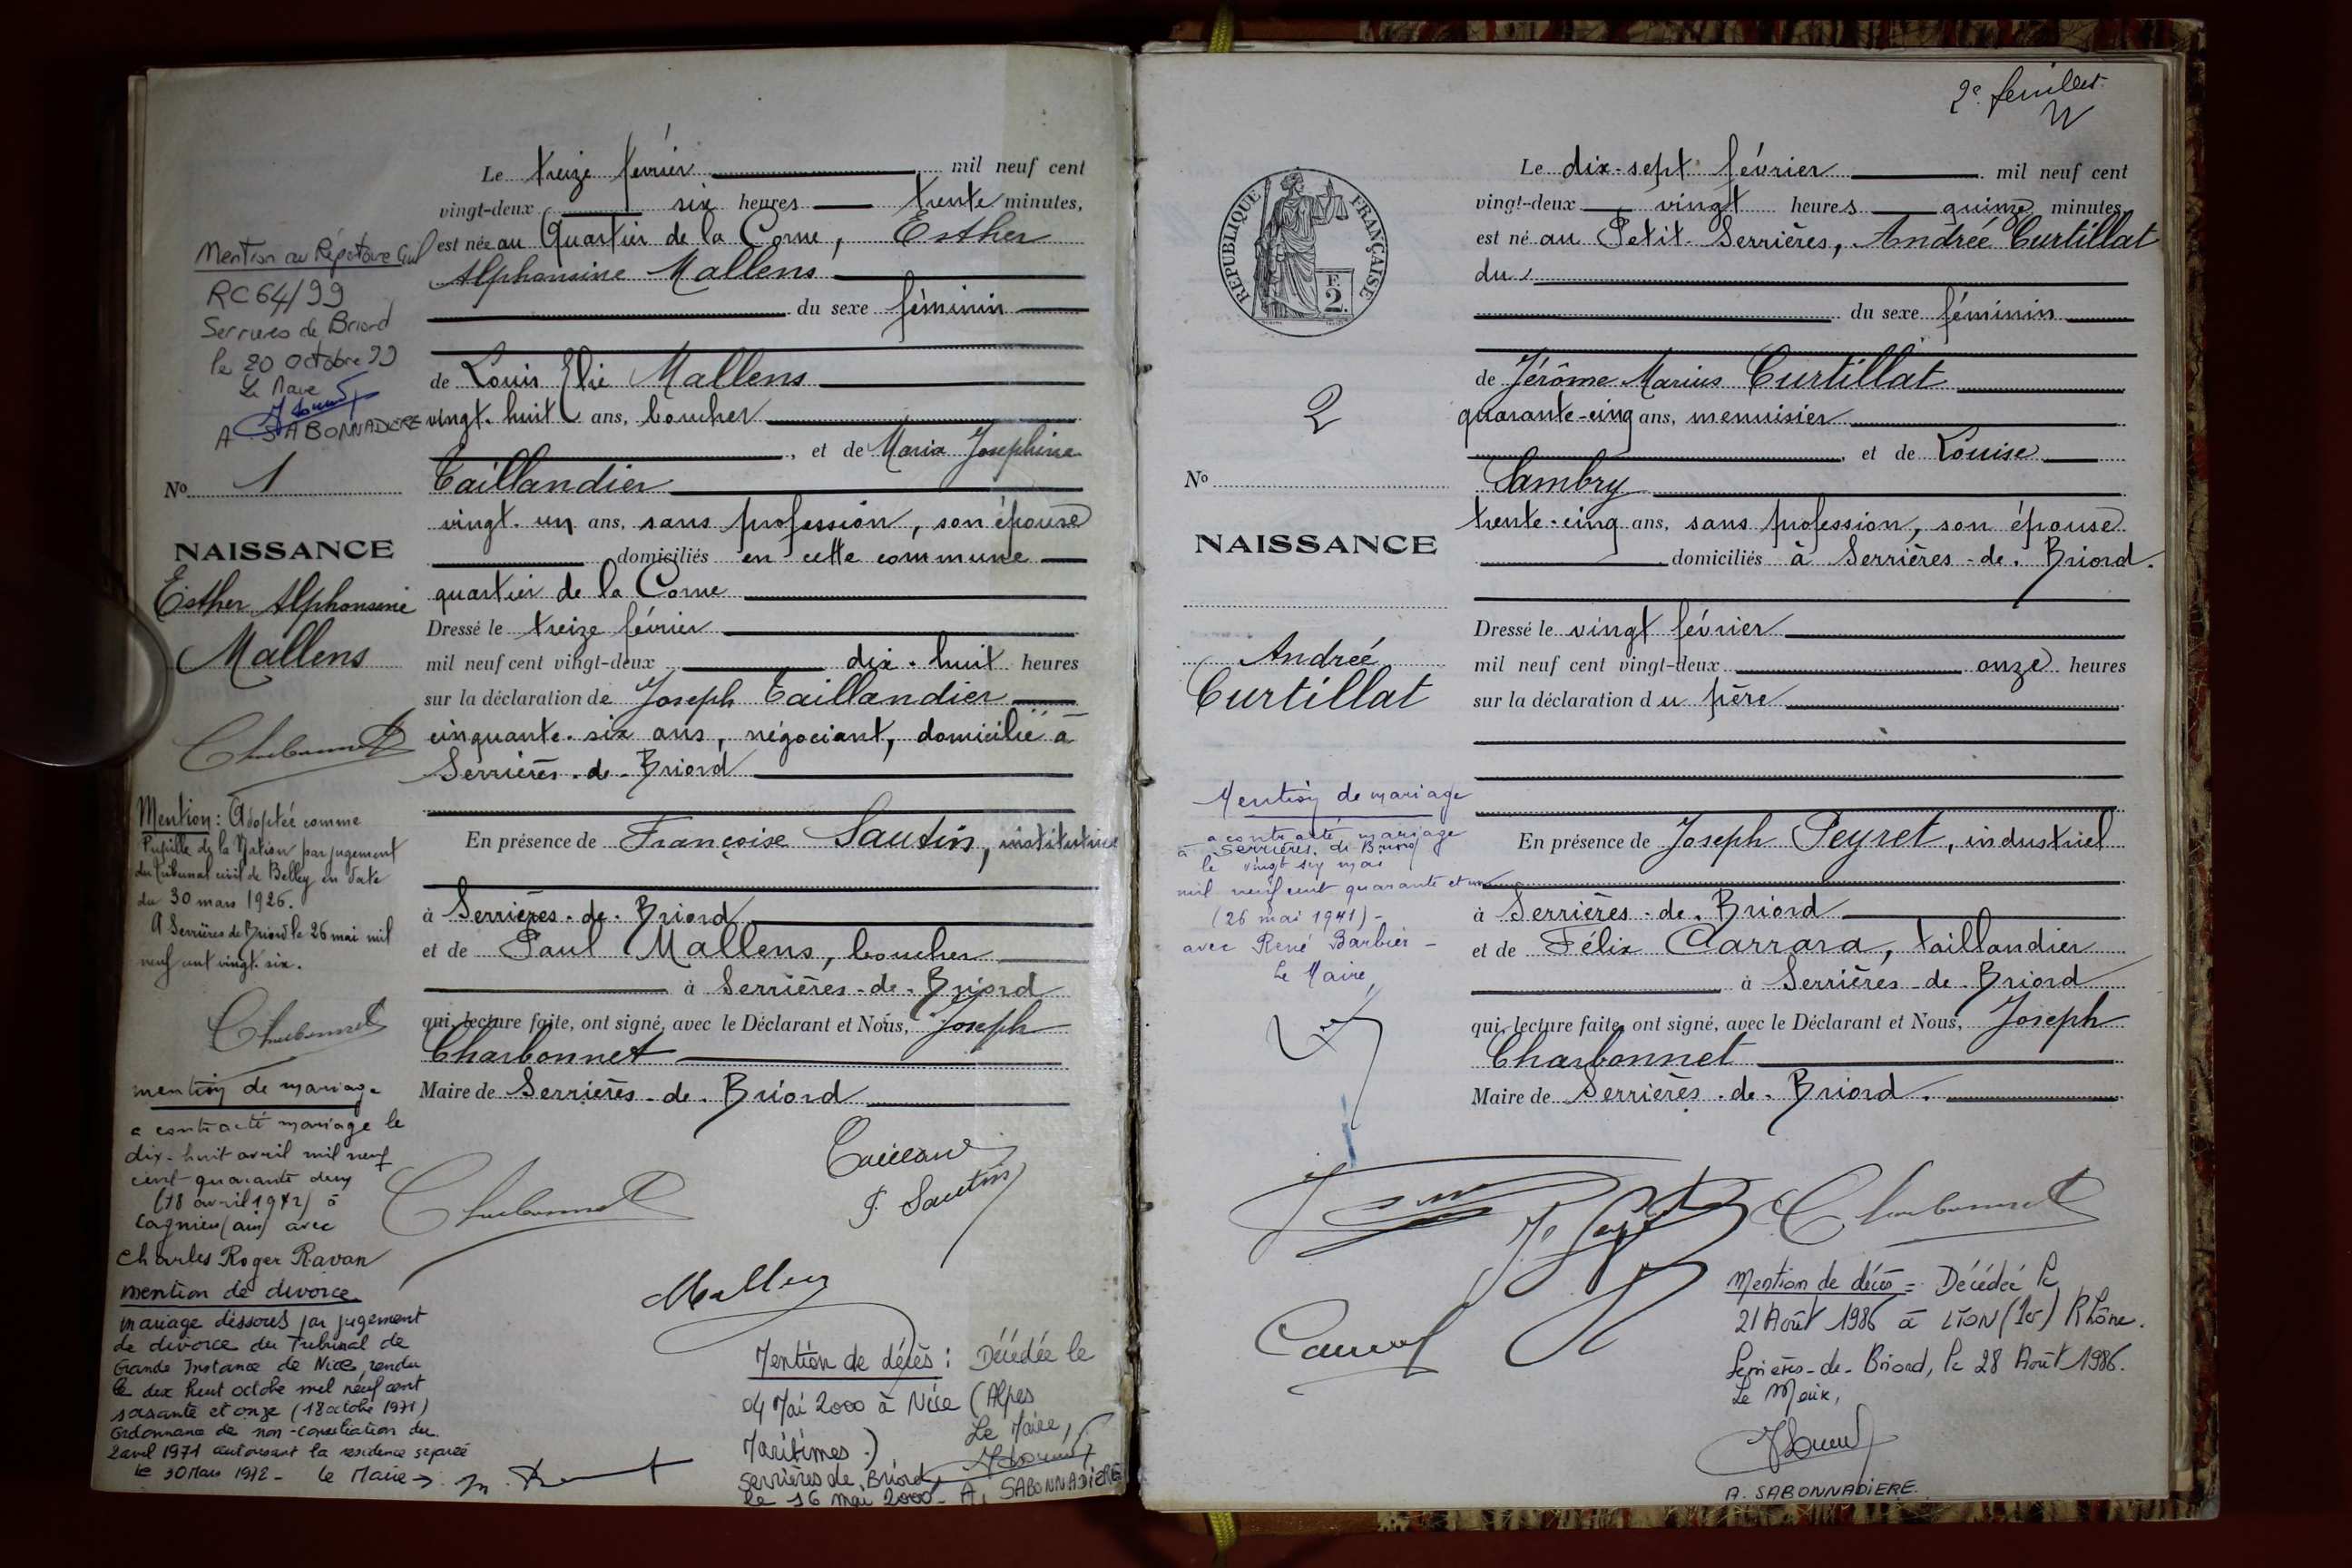 Le treize février mil neuf cent
vingt-deux six heures trente minutes,
est née au Quartier de la Corne, Esther
Alphonsine Mallens
du sexe féminin
de Louis Elie Mallens
vingt-huit ans, boucher
, et de Maria Josephine
Taillandier
vingt-un ans, sans profession, son épouse
domiciliés en cette commune
quartier de la Corne
Dressé le treize février
mil neuf cent vingt-deux dix-huit heures
sur la déclaration de Joseph Taillandier
cinquante-six ans, négociant, domicilié à
Serrières-de-Briord
En présence de Françoise Sautin, institutrice
à Serrières-de-Briord
et de Paul Mallens, boucher
à Serrières-de-Briord
qui, lecture faite, ont signé, avec le Déclarant et Nous, Joseph
Charbonnet
Maire de Serrières-de-Briord
F. Sautin
Mallens
Mention de décès : Décédée le
04 Mai 2000 à Nice (Alpes
Maritimes.)
Le Maire,
Serrières de Briord,
le 16 mai 2000 - A. SABONNADIERE
Mention au Répertoire Civil
RC 64/99
Serrières de Briord
le 20 octobre 99
Le Maire
A. SABONNADIERE
No 1
NAISSANCE
Esther Alphonsine
Mallens
Charbonnet
Mention : Adoptée comme
Pupille de la Nation par jugement
du tribunal civil de Belley en date
du 30 mars 1926.
A Serrières de Briord le 26 mai mil
neuf cent vingt-six.
Charbonnet
mention de mariage
a contracté mariage le
dix-huit avril mil neuf
cent quarante deux
(18 avril 1942) à
Lagnieu (ain) avec
Charles Roger Ravan
mention de divorce
mariage dissous par jugement
de divorce du Tribunal de
Grande Instance de Nice, rendu
le dix huit octobre mil neuf cent
soixante et onze (18 octobre 1971)
Ordonnance de non-conciliation du
2 avril 1971 autorisant la résidence séparée
le 30 Mars 1972 - le Maire →
Charbonnet
2e feuillet
Le dix-sept février mil neuf cent
vingt-deux vingt heures quinze minutes
est né au Petit Serrières, Andrée Curtillat
du
du sexe féminin
de Jérôme Marius Curtillat
quarante-cinq ans, menuisier
, et de Louise
Sambry
trente-cinq ans, sans profession, son épouse
domiciliés à Serrières-de-Briord.
Dressé le vingt février
mil neuf cent vingt-deux onze heures
sur la déclaration du père
En présence de Joseph Peyret, industriel
à Serrières-de-Briord
et de Félix Carrara, taillandier
à Serrières-de-Briord
qui, lecture faite, ont signé, avec le Déclarant et Nous, Joseph
Charbonnet
Maire de Serrières-de-Briord.
RÉPUBLIQUE FRANÇAISE
F.
2.
2
No
NAISSANCE
Andrée
Curtillat
Mention de mariage
a contracté mariage
à Serrières de Briord
le vingt six mai
mil neuf cent quarante et un
(26 mai 1941) -
avec René Barbier -
Le Maire,
Charbonnet
Mention de décès = Décédée le
21 Août 1986 à LYON (10) Rhône.
Serrières-de-Briord, le 28 Août 1986.
Le Maire,
A. SABONNADIERE.